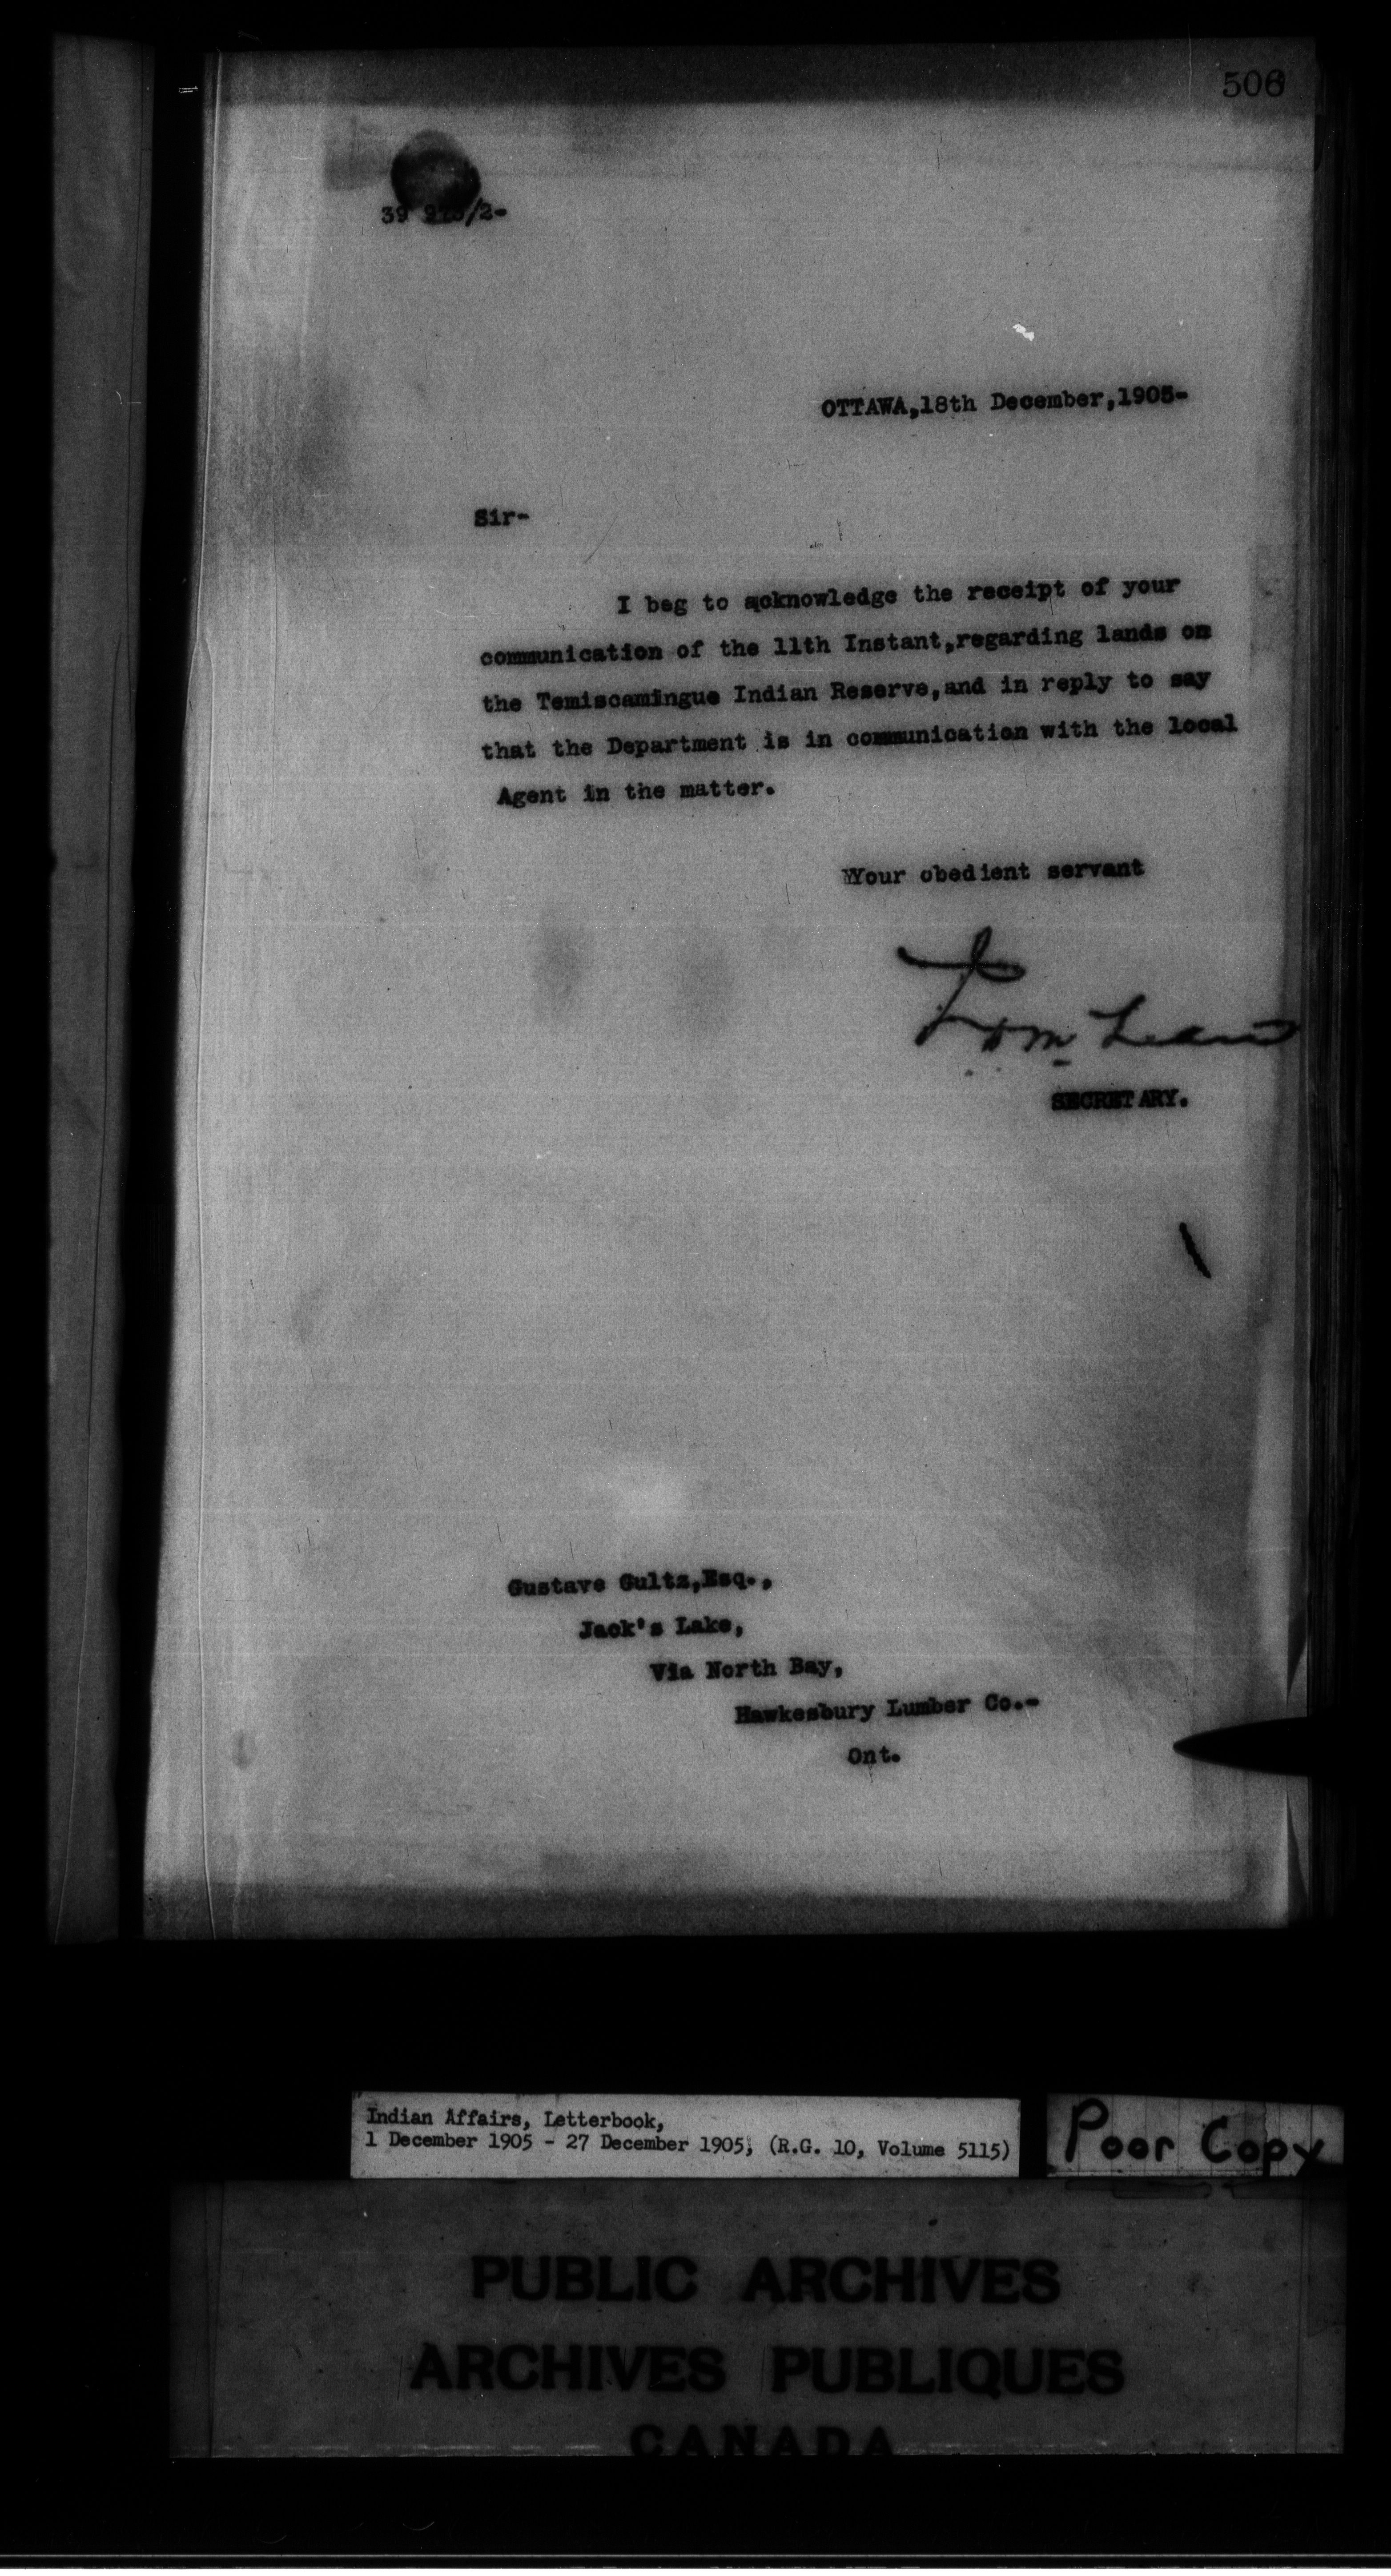 506
39
OTTAWA,18th December,1905-
Sir-
I beg to acknowledge the receipt of your
communication of the 11th Instant,regarding lands on
the Temiscamingue Indian Reserve,and in reply to say
that the Department is in communication with the local
Agent in the matter.
Your obedient servant
SECRETARY.
Gustave Gultz,Esq.,
Jack's Lake,
Via North Bay,
Hawkesbury Lumber Co.-
Ont.
Indian Affairs, Letterbook,
1 December 1905 - 27 December 1905, (R.G. 10, Volume 5115)
Poor Copy
PUBLIC ARCHIVES
ARCHIVES PUBLIQUES
CANADA